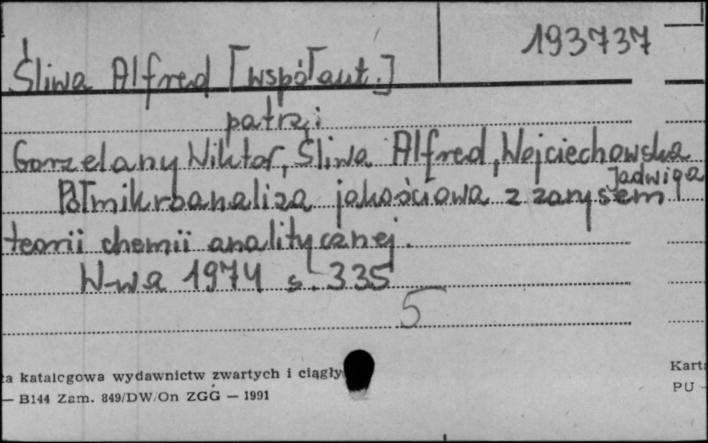 193737
Śliwa Alfred [współaut.]
patrzi
Gorzelany Wiktor, Śliwa Alfred, Wojciechowska
Jadwiga
Półmikroanaliza jakościowa z zarysem
teorii chemii analitycznej.
W-wa 1974 s. 335
5
ta katalogowa wydawnictw zwartych i ciągły
— B144 Zam. 849/DW/On ZGG — 1991
Karta
PU -